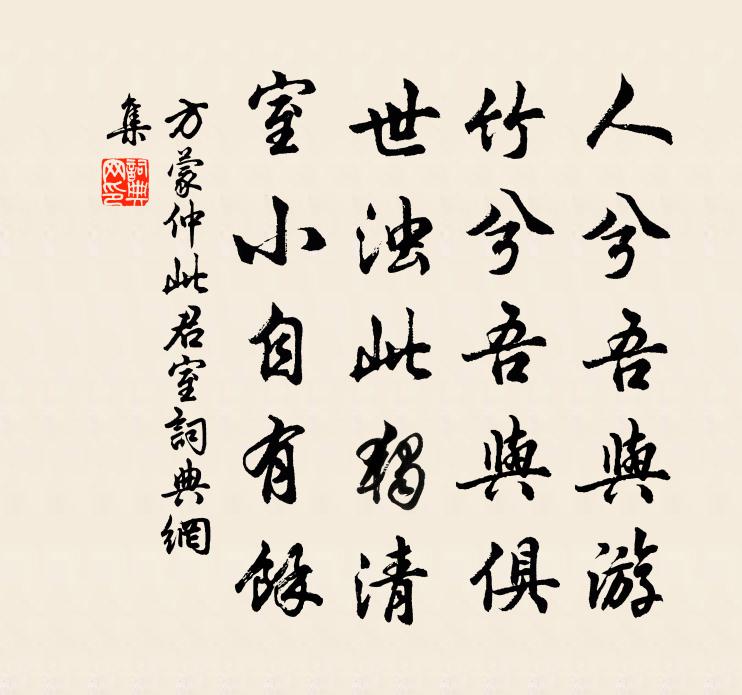 人兮吾與游
竹兮吾與俱
世浊此独清
室小自有馀
方蒙仲此君室詞典網
集
詞典網印